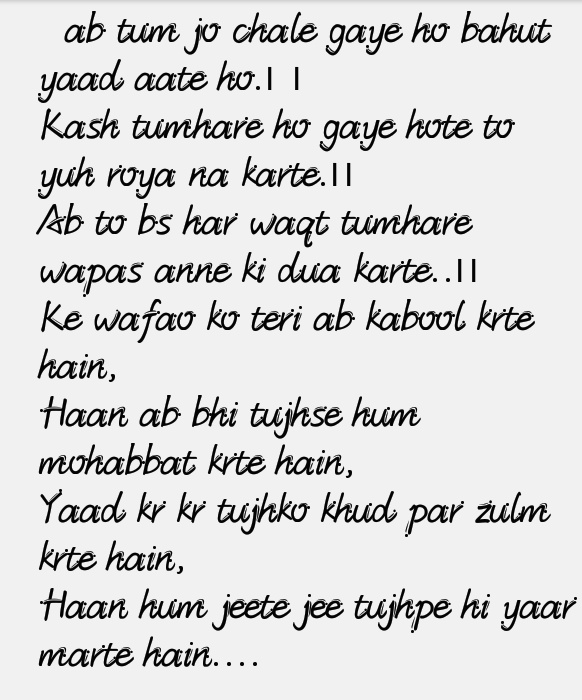 ab tum jo chale gaye ho bahut
yaad aate ho.| |
Kash tumhare ho gaye hote to
yuh roya na karte.||
Ab to bs har waqt tumhare
wapas anne ki dua karte..||
Ke wafao ko teri ab kabool krte
hain,
Haan ab bhi tujhse hum
mohabbat krte hain,
Yaad kr kr tujhko khud par zulm
krte hain,
Haan hum jeete jee tujhpe hi yaar
marte hain....